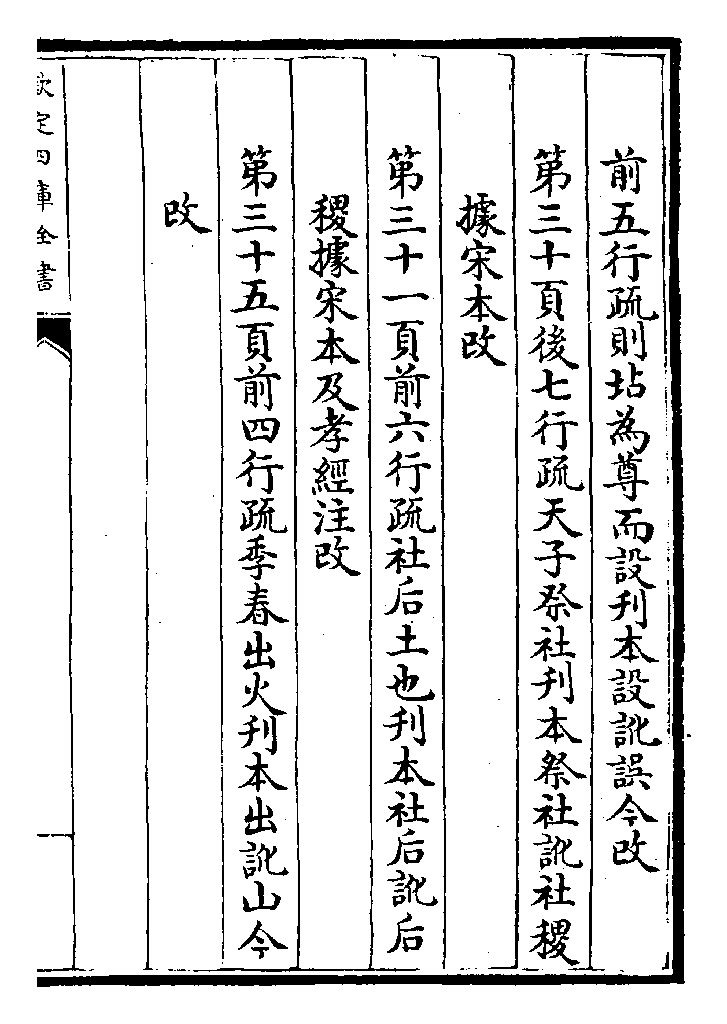 前五行疏則坫為尊而設刋本設訛誤今改
第三十頁後七行疏天子祭社刋本祭社訛社稷
據宋本改
第三十一頁前六行疏社后土也刋本社后訛后
稷據宋本及孝經注改
第三十五頁前四行疏季春出火刋本出訛山今
改
欽定四庫全書